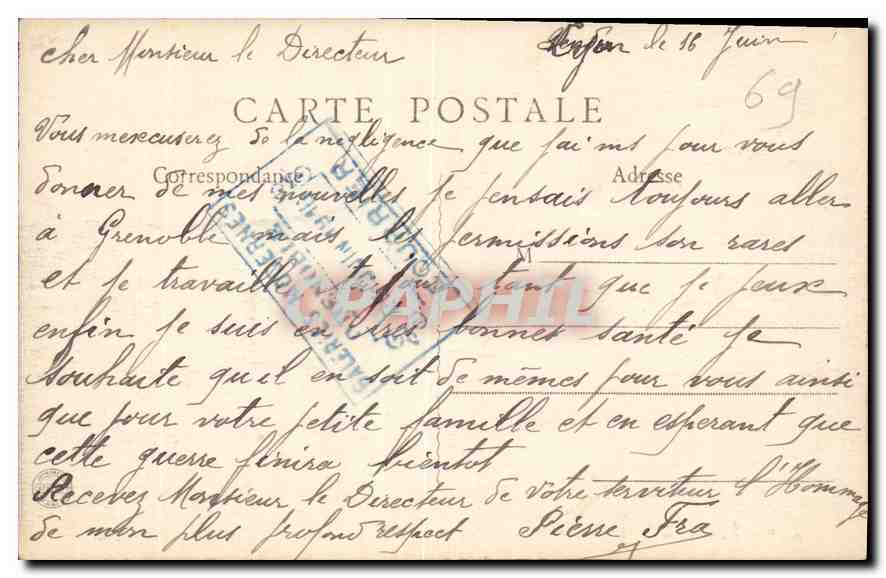 cher Monsieur le Directeur
le 16 Juin
69
CARTE POSTALE
Vous mexcuserez de la négligence que jai mis pour vous
Correspondance
Adresse
donner de mes nouvelles je pensais toujours aller
à Grenoble mais les permissions son rares
M
et je travaille toujours tant que je peux
enfin je suis en tres bonnes santé je
souhaite quil en soit de mêmes pour vous ainsi
que pour votre petite famille et en esperant que
cette guerre finira bientot
Recevez Monsieur le Directeur de votre serviteur l'Hommage
de mon plus profond respect Pierre Fra
GALERIES MODERNES
GRENOBLE
JUIN 191
COURRIER
CPAPHIL